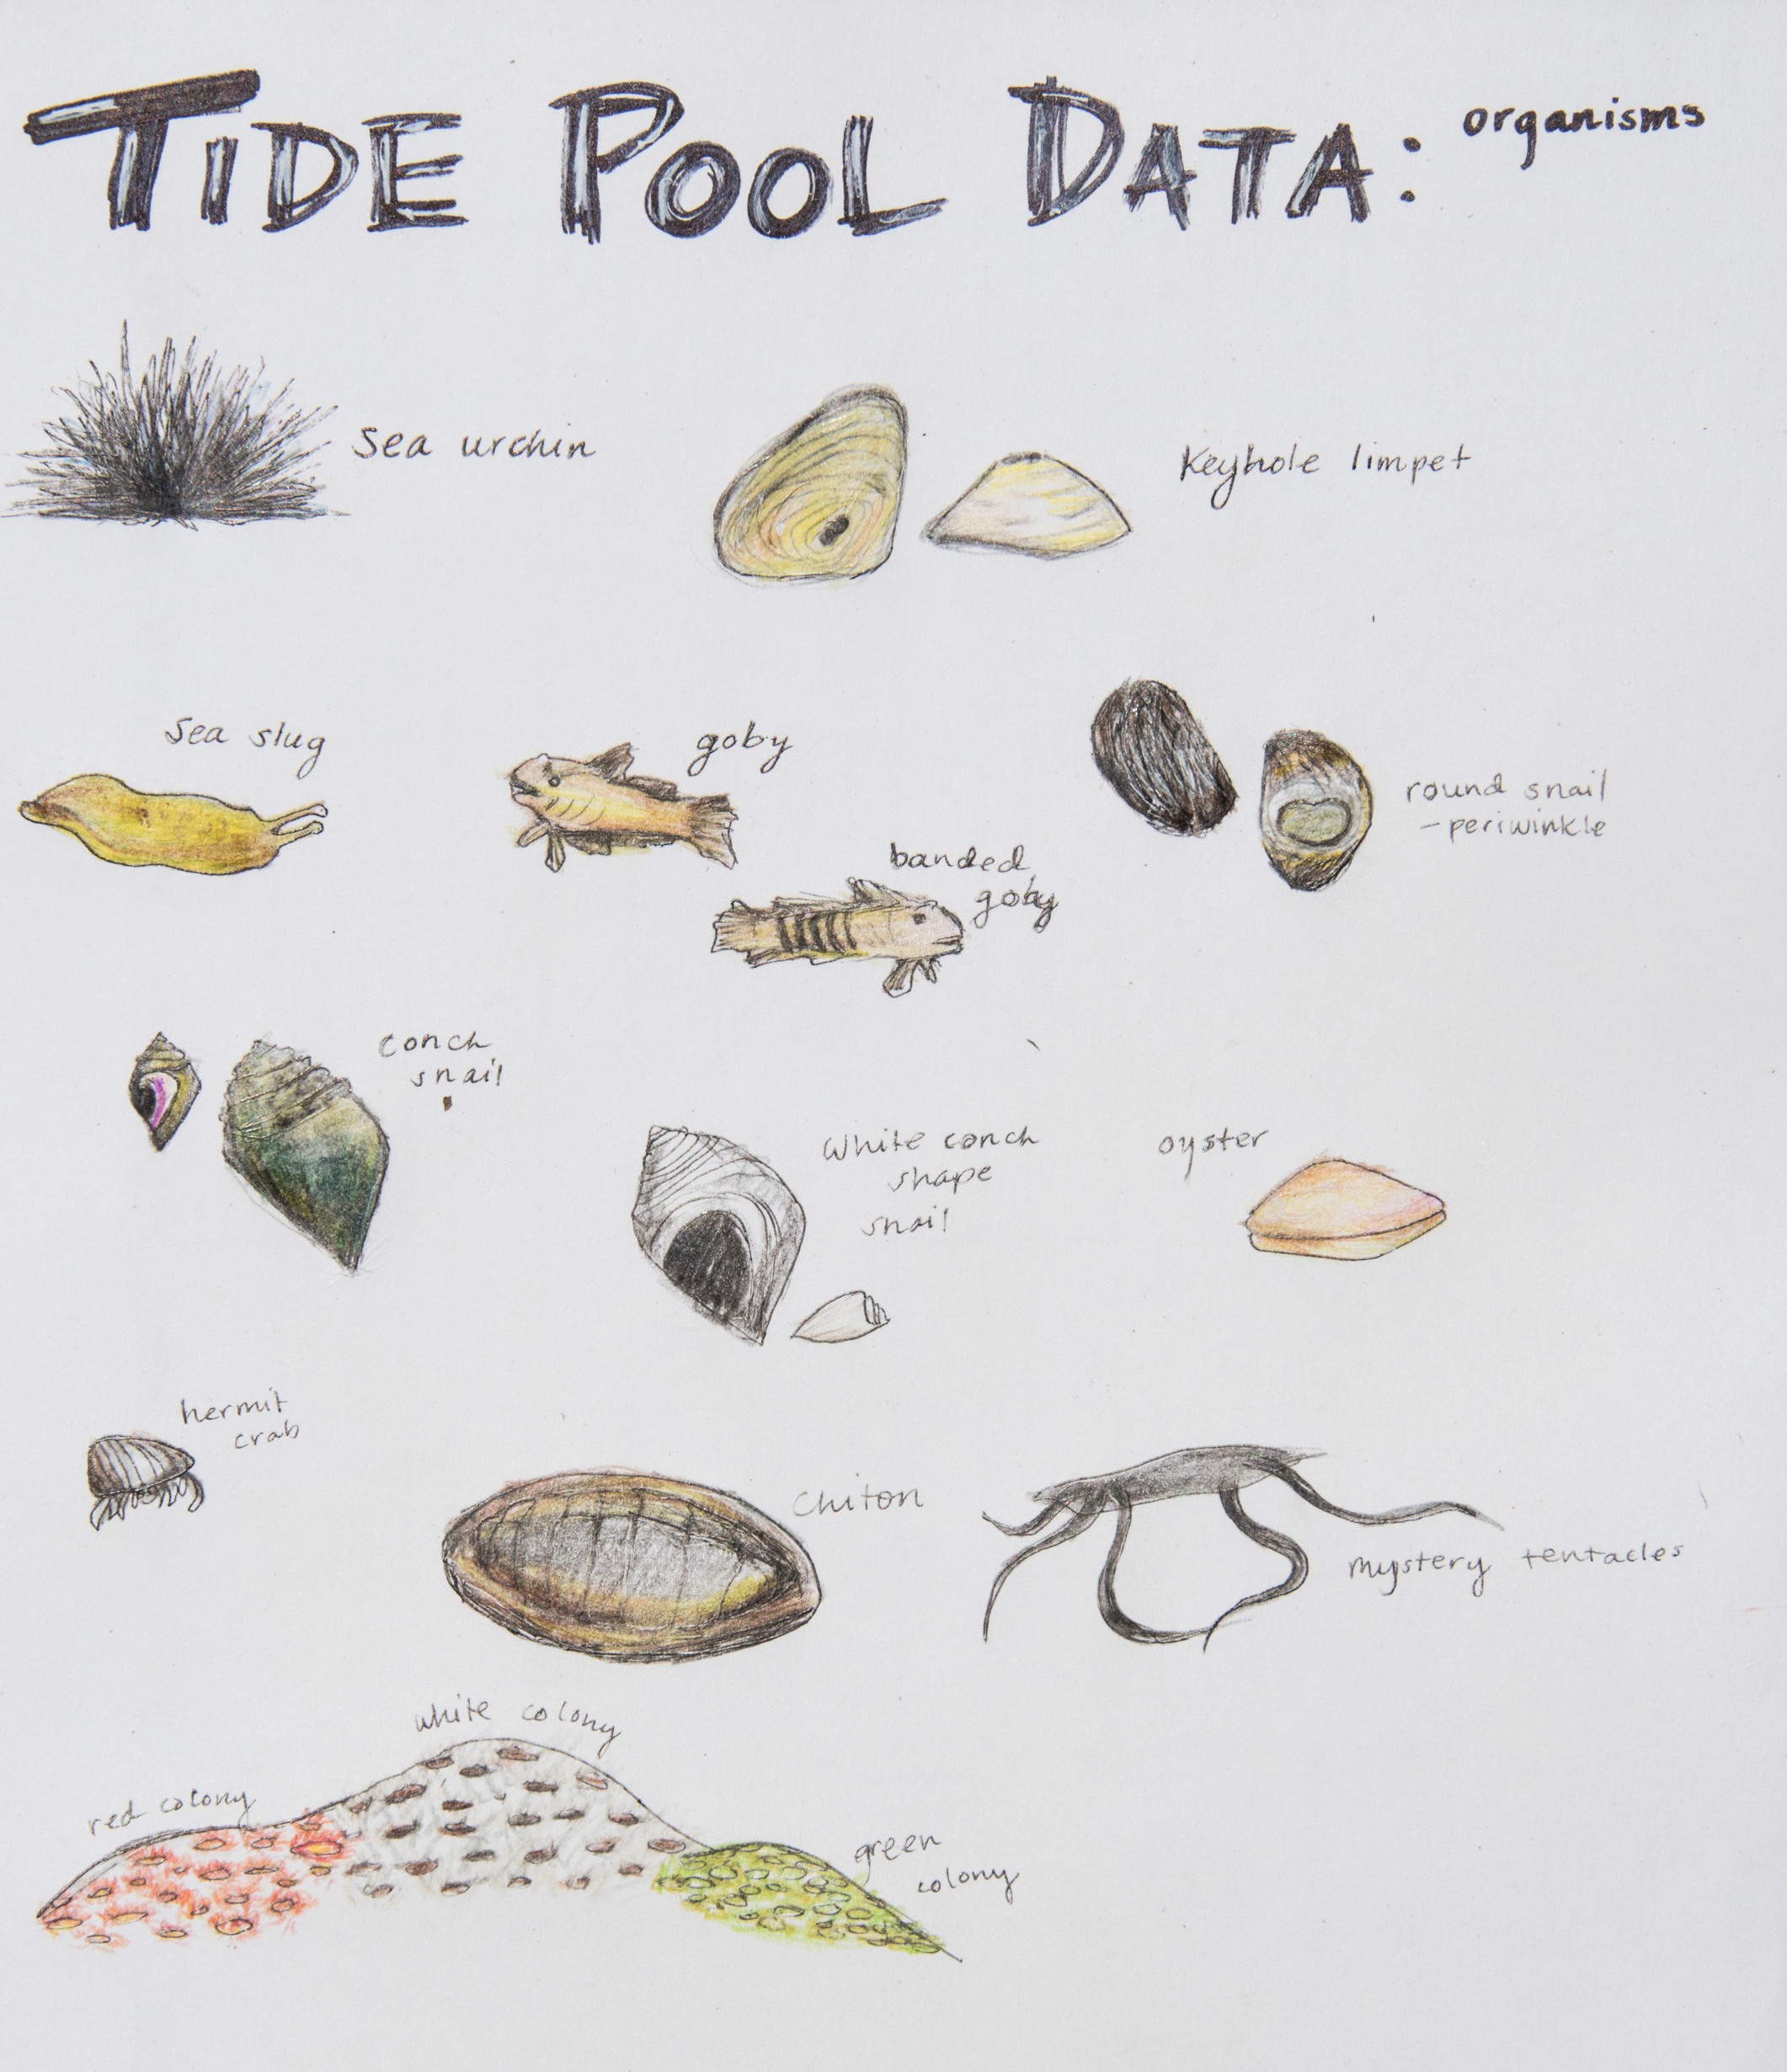 TIDE POOL DATA: organisms
Sea urchin
Keyhole limpet
Sea slug
goby
round snail
- periwinkle
banded
goby
conch
snail
White conch
shape
snail
oyster
hermit
crab
Chiton
mystery tentacles
white colony
red colony
green
colony